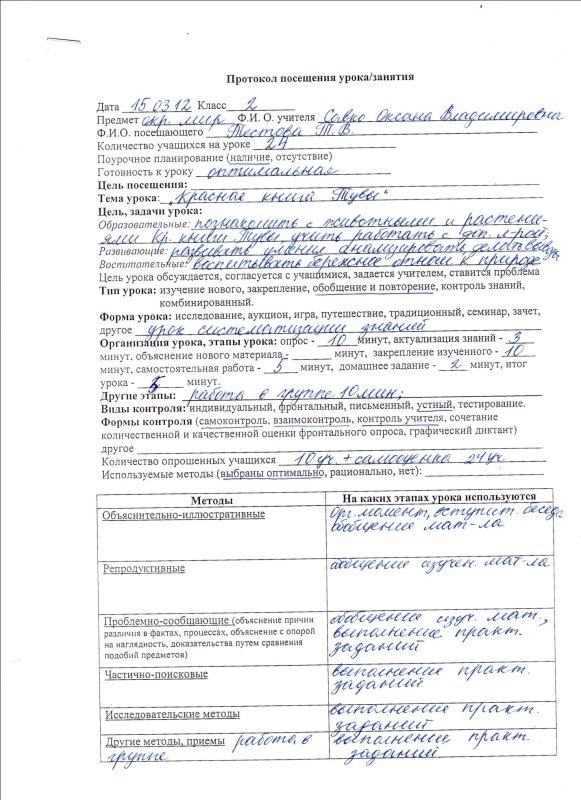 Протокол посещения урока/занятия
Дата 15 03 12 Класс 2
Предмет окр. мир Ф.И. О. учителя Совко Оксана Владимировна
Ф.И.О. посещающего Тестова Т. В.
Количество учащихся на уроке 24
Поурочное планирование (наличие, отсутствие)
Готовность к уроку оптимальная
Цель посещения:
Тема урока: „Красная книга Тувы“
Цель, задачи урока:
Образовательные: познакомить с животными и растени-
ями Кр. книги Тувы, учить работать с доп. л-рой;
Развивающие: развивать умения анализировать, делать выводы,
Воспитательные: воспитывать бережное отнош. к природе
Цель урока обсуждается, согласуется с учащимися, задается учителем, ставится проблема
Тип урока: изучение нового, закрепление, обобщение и повторение, контроль знаний,
комбинированный.
Форма урока: исследование, аукцион, игра, путешествие, традиционный, семинар, зачет,
другое урок систематизации знаний
Организация урока, этапы урока: опрос - 10 минут, актуализация знаний - 3
минут, объяснение нового материала - минут, закрепление изученного - 10
минут, самостоятельная работа - 5 минут, домашнее задание - 2 минут, итог
урока - 5 минут.
Другие этапы: работа в группе 10 мин;
Виды контроля: индивидуальный, фронтальный, письменный, устный, тестирование.
Формы контроля (самоконтроль, взаимоконтроль, контроль учителя, сочетание
количественной и качественной оценки фронтального опроса, графический диктант)
другое
Количество опрошенных учащихся 10 уч. + самооценка 24 уч.
Используемые методы (выбраны оптимально, рационально, нет):
Методы На каких этапах урока используются
Объяснительно-иллюстративные орг. момент, вступит. беседа
обобщение мат-ла
Репродуктивные обобщение изучен. мат-ла
Проблемно-сообщающие (объяснение причин обобщение изуч. мат.,
различия в фактах, процессах, объяснение с опорой выполнение практ.
на наглядность, доказательства путем сравнения заданий
подобий предметов)
Частично-поисковые выполнение практ.
заданий
Исследовательские методы выполнение практ.
заданий
Другие методы, приемы работа в выполнение практ.
группе заданий